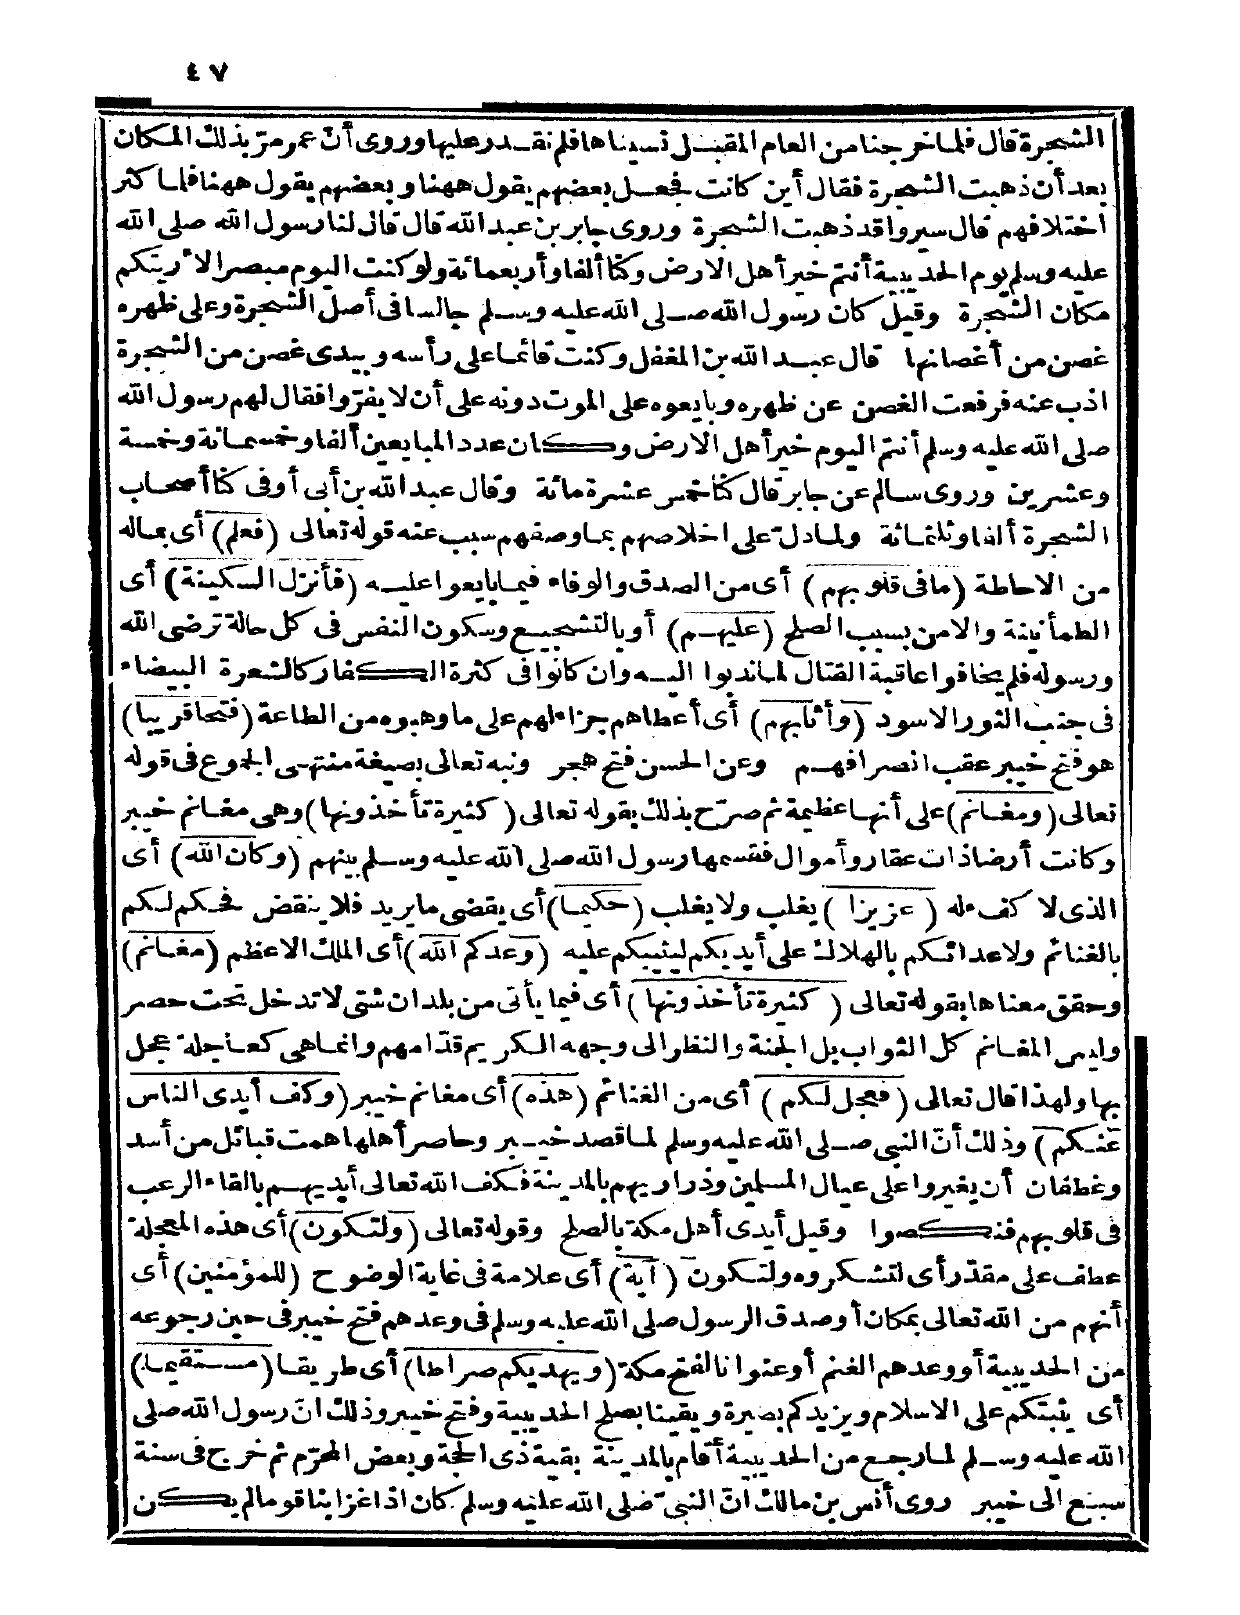 ٤٧
الشجرة قال فلما خرجنا من العام المقبل نسيناها فلم نقدر عليها وروى أنّ عمر مرّ بذلك المكان
بعد أن ذهبت الشجرة فقال أين كانت فجعل بعضهم يقول ههنا وبعضهم يقول ههنا فلما كثر
اختلافهم قال سيروا قد ذهبت الشجرة وروى جابر بن عبد الله قال قال لنا رسول الله صلى الله
عليه وسلم يوم الحديبية أنتم خير أهل الارض وكنا ألفا وأربعمائة ولو كنت اليوم مبصرا لأريتكم
مكان الشجرة وقيل كان رسول الله صلى الله عليه وسلم جالسا فى أصل الشجرة وعلى ظهره
غصن من أغصانها قال عبد الله بن المغفل وكنت قائما على رأسه وبيدى غصن من الشجرة
اذب عنه فرفعت الغصن عن ظهره وبايعوه على الموت دونه على أن لا يفرّوا فقال لهم رسول الله
صلى الله عليه وسلم أنتم اليوم خير أهل الارض وكان عدد المبايعين ألفا وخمسمائة وخمسة
وعشرين وروى سالم عن جابر قال كنا خمس عشرة مائة وقال عبد الله بن أبى أوفى كنا أصحاب
الشجرة ألفا وثلثمائة ولما دلّ على اخلاصهم بما وصفهم سبب عنه قوله تعالى (فعلم) أى بماله
من الاحاطة (ما فى قلوبهم) أى من الصدق والوفاء فيما بايعوا عليه (فأنزل السكينة) أى
الطمأنينة والامن بسبب الصلح (عليهم) أو بالتشجيع وسكون النفس فى كل حالة ترضى الله
ورسوله فلم يخافوا عاقبة القتال لما ندبوا اليه وان كانوا فى كثرة الكفار كالشعرة البيضاء
فى جنب الثور الاسود (وأثابهم) أى أعطاهم جزاء لهم على ما وهبوه من الطاعة (فتحا قريبا)
هو فتح خيبر عقب انصرافهم وعن الحسن فتح هجر ونبه تعالى بصيغة منتهى الجموع فى قوله
تعالى (ومغانم) على أنها عظيمة ثم صرّح بذلك بقوله تعالى (كثيرة تأخذونها) وهى مغانم خيبر
وكانت أرضا ذات عقار وأموال فقسمها رسول الله صلى الله عليه وسلم بينهم (وكان الله) أى
الذى لا كفء له (عزيزا) يغلب ولا يغلب (حكيما) أى يقضى ما يريد فلا ينقض فحكم لكم
بالغنائم ولاعدائكم بالهلاك على أيديكم ليثيبكم عليه (وعدكم الله) أى الملك الاعظم (مغانم)
وحقق معناها بقوله تعالى (كثيرة تأخذونها) أى فيما يأتى من بلدان شتى لا تدخل تحت حصر
وليس المغانم كل الثواب بل الجنة والنظر الى وجهه الكريم قدّامهم وانما هى كعاجلة عجل
بها ولهذا قال تعالى (فعجل لكم) أى من الغنائم (هذه) أى مغانم خيبر (وكف أيدى الناس
عنكم) وذلك أنّ النبى صلى الله عليه وسلم لما قصد خيبر وحاصر أهلها همت قبائل من أسد
وغطفان أن يغيروا على عيال المسلمين وذراريهم بالمدينة فكف الله تعالى أيديهم بالقاء الرعب
فى قلوبهم فنكصوا وقيل أيدى أهل مكة بالصلح وقوله تعالى (ولتكون) أى هذه المعجلة
عطف على مقدّر أى لتشكروه ولتكون (آية) أى علامة فى غاية الوضوح (للمؤمنين) أى
أنهم من الله تعالى بمكان أو صدق الرسول صلى الله عليه وسلم فى وعدهم فتح خيبر فى حين رجوعه
من الحديبية أو وعدهم الغنم أو عنوانا لفتح مكة (ويهديكم صراطا) أى طريقا (مستقيما)
أى يثبتكم على الاسلام ويزيدكم بصيرة ويقينا بصلح الحديبية وفتح خيبر وذلك انّ رسول الله صلى
الله عليه وسلم لما رجع من الحديبية أقام بالمدينة بقية ذى الحجة وبعض المحرّم ثم خرج فى سنة
سبع الى خيبر روى أنس بن مالك انّ النبىّ صلى الله عليه وسلم كان اذا غزا بنا قوما لم يكن